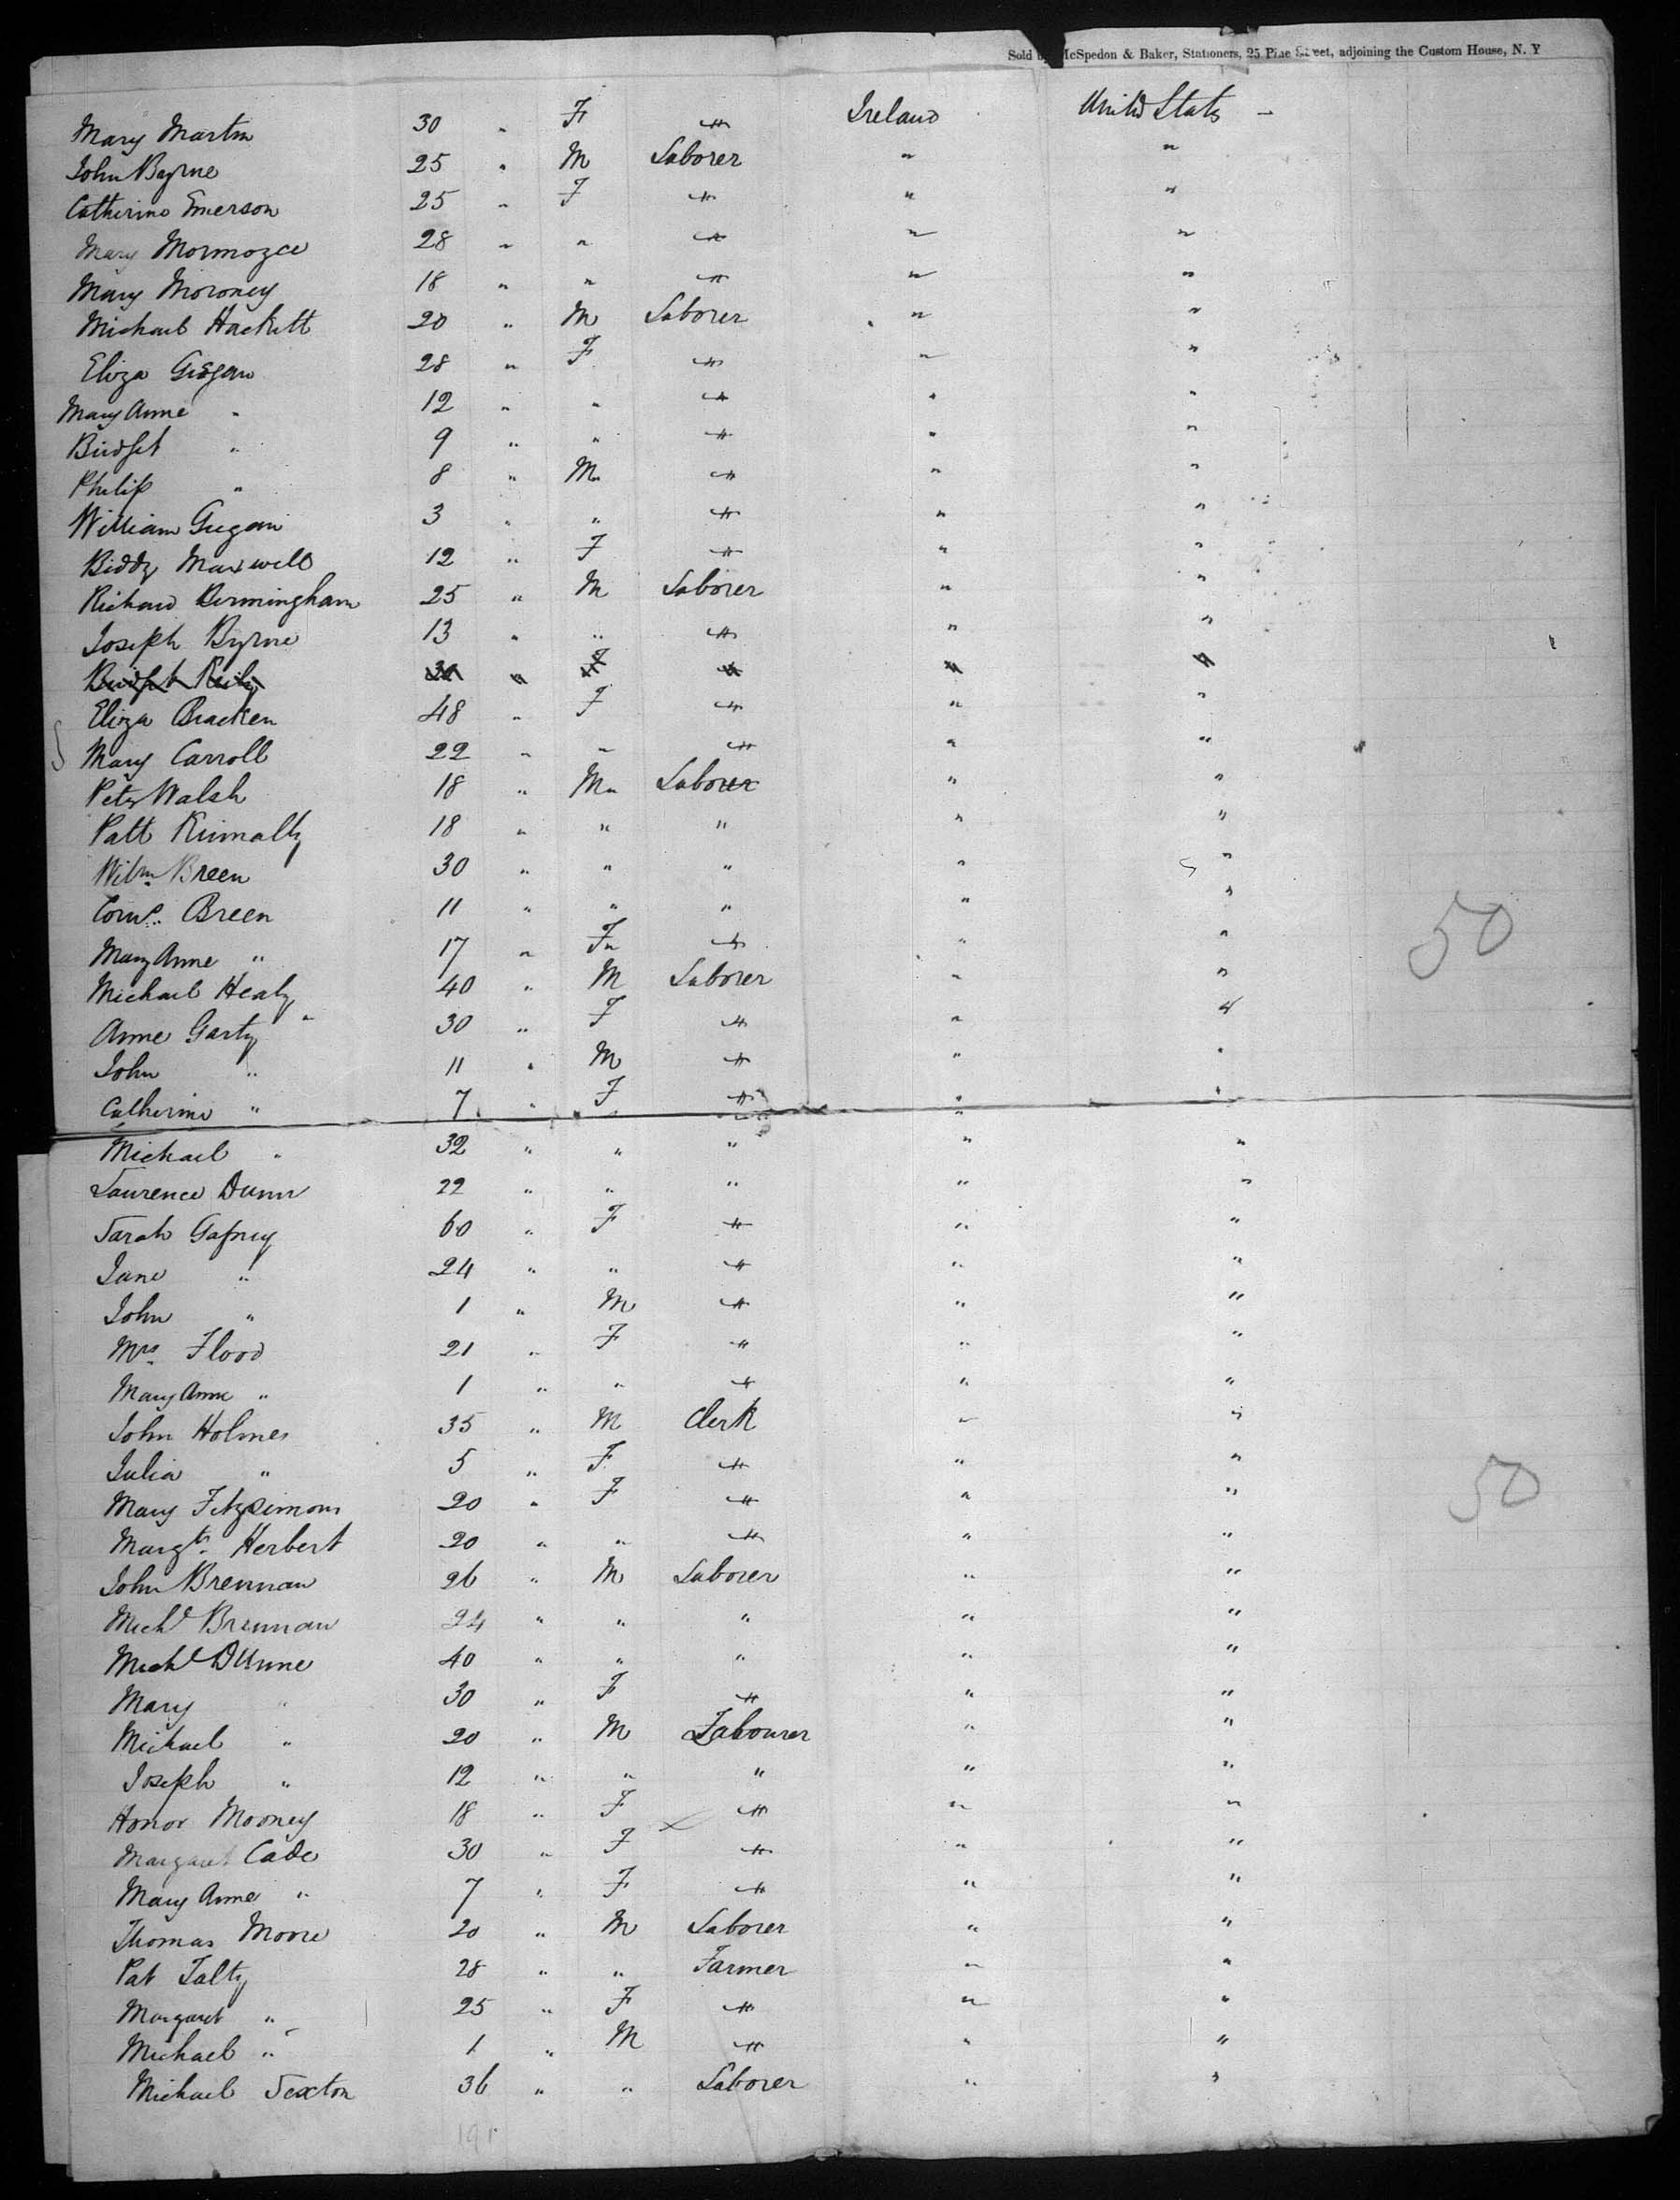 Sold by McSpedon & Baker, Stationers, 25 Pine Street, adjoining the Custom House, N. Y
Mary Martin 30 " F " Ireland United States -
John Byrne 25 " M Laborer " "
Catherine Emerson 25 " F " " "
Mary 28 " " " " "
Mary Moroney 18 " " " " "
Michael Hackett 20 " M Laborer " "
Eliza 28 " F " " "
Mary Anne " 12 " " " " "
Bridget " 9 " " " " "
Philip " 8 " M " " "
William 3 " " " " "
Biddy Maxwell 12 " F " " "
Richard Bermingham 25 " M Laborer " "
Joseph Byrne 13 " " " " "
Bridget Reily 30 " F " " "
Eliza Bracken 48 " F " " "
Mary Carroll 22 " " " " "
Peter Walsh 18 " M Laborer " "
Patt 18 " " " " "
Wilm Breen 30 " " " " "
Corns. Breen 11 " " " " "
50
Mary Anne " 17 " F " " "
Michael Healy 40 " M Laborer " "
Anne Garty 30 " F " " "
John " 11 " M " " "
Catherine " 7 " F " " "
Michael " 32 " " " " "
Laurence Dunn 22 " " " " "
Sarah Gafney 60 " F " " "
Jane " 24 " " " " "
John " 1 " M " " "
Mrs Flood 21 " F " " "
Mary Anne " 1 " " " " "
John Holmes 35 " M Clerk " "
Julia " 5 " F " " "
50
Mary Fitzsimons 20 " F " " "
Margt. Herbert 20 " " " " "
John Brennan 26 " M Laborer " "
Michl Brennan 24 " " " " "
Michl Dunne 40 " " " " "
Mary " 30 " F " " "
Michael " 20 " M Labourer " "
Joseph " 12 " " " " "
Honor Mooney 18 " F " " "
Margaret Cade 30 " F " " "
Mary Anne " 7 " F " " "
Thomas Moore 20 " M Laborer " "
Pat Talty 28 " " Farmer " "
Margaret " 25 " F " " "
Michael " 1 " M " " "
Michael Sexton 36 " " Laborer " "
191